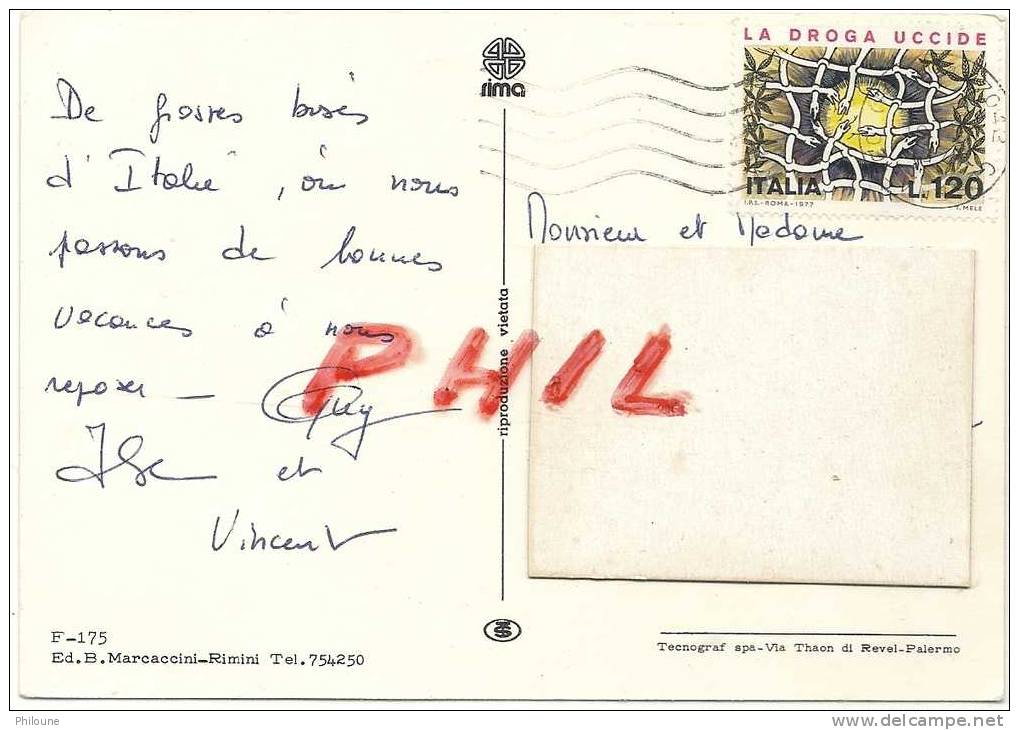 De grosses bises
d'Italie, où nous
passons de bonnes
vacances à nous
reposer _ Guy
et
Vincent
F-175
Ed.B.Marcaccini-Rimini Tel.754250
rima
riproduzione vietata
LA DROGA UCCIDE
ITALIA L.120
I.P.S.-ROMA-1977 T. MELE
Monsieur et Madame
PHIL
Tecnograf spa-Via Thaon di Revel-Palermo
Philoune
http://www.delcampe.net